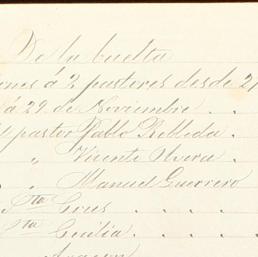 De la buelta
á 2 pastores desde 21
á 29 de Noviembre . .
pastor Pablo Relleda .
" Vicente Urera .
" " Manuel Guerrero
Sta Cruz . . . . .
Sta Cecilia . . . . .